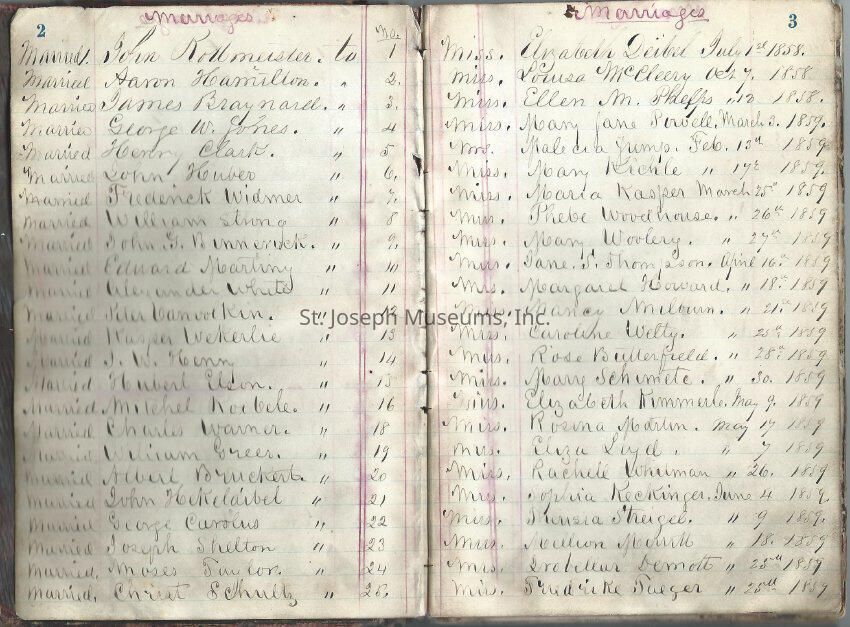 2 Marriages
No.
Married. John Rottmeister. to 1
Married Aaron Hamilton. " 2.
Married James Braynard. " 3.
Married George W. Jones. " 4
Married Henry Clark. " 5
Married John Huber " 6.
Married Frederick Widmer " 7.
Married William Strong " 8
Married John G. " 9.
Married Edward Martiny " 10
Married Alexander White " 11
Married Peter " 12
Married Kasper Wekerlie " 13
Married J. W. Henry " 14
Married Hubert Elson. " 15
Married Mitchel Koebele. " 16
Married Charles Warner. " 18
Married William Greer. " 19
Married Albert Bruckert. " 20
Married John " 21
Married George Carolus " 22
Married Joseph Shelton " 23
Married Moses Taylor. " 24
Married. Christ Schultz " 25.
Marriages 3
Miss. Elizabeth Deibel July 1st 1858.
Miss. Louisa McCleery Oct 7. 1858.
Miss. Ellen M. Phelps " 12 1858.
Miss. Mary Jane Powell. March 3. 1859.
Feb. 13th 1859
Miss. Mary 1859
Miss. Maria Kasper March 25th 1859
Miss. Phebe Woodhouse. " 26th 1859
Miss. Mary Woolery. " 27th 1859
Miss. Jane. S. Thompson. April 16th 1859
Miss. Margaret Howard. " 18th 1859
Nancy Milburn. " 21st 1859
Miss. Caroline Welty. " 25th 1859
Miss. Rose Butterfield. " 28th 1859.
Miss. Mary " 30. 1859
Miss. Elizabeth Kimmerle. May 9. 1859
Miss. Rosina Martin. May 17 1859
Miss. Eliza " 1859
Miss. Rachell " 26. 1859
Miss. Sophia Keckinger. June 4 1859.
Miss. " 9 1859.
Miss. " 18. 1859
Miss. " 23rd 1859
Miss. Fredrike Jaeger " 25th 1859
St. Joseph Museums, Inc.